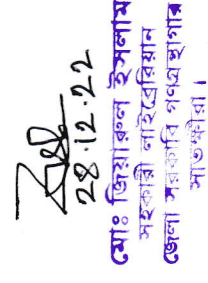 ২৪.১২.২২
মোঃ জিয়ারুল ইসলাম
সহকারী লাইব্রেরিয়ান
জেলা সরকারি গণগ্রন্থাগার
সাতক্ষীরা।